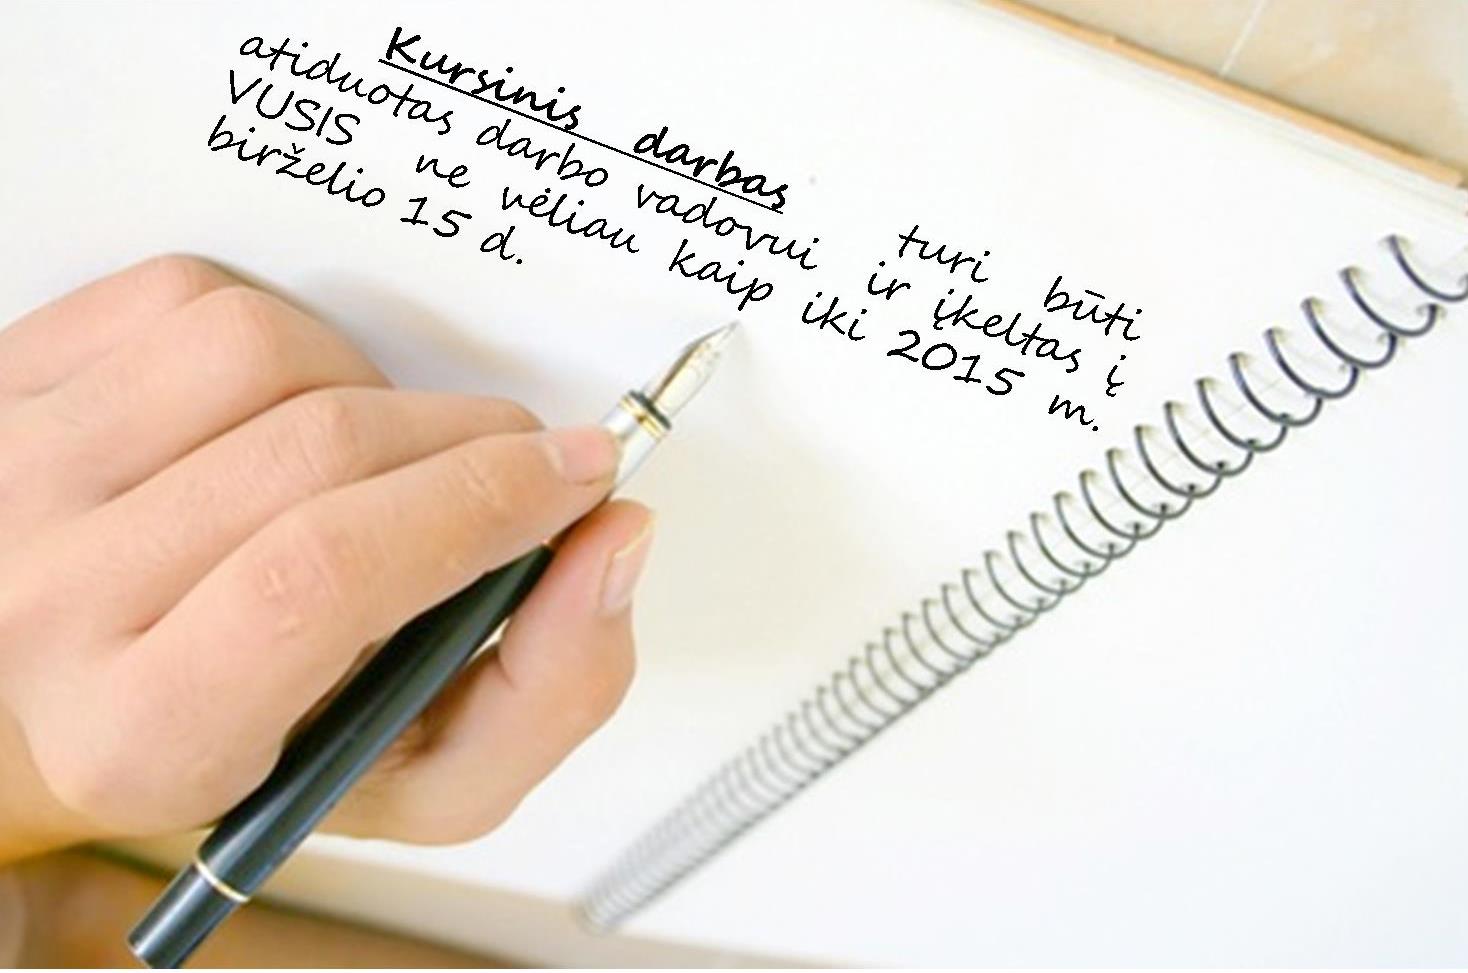 Kursinis darbas turi būti
atiduotas darbo vadovui ir įkeltas į
VUSIS ne vėliau kaip iki 2015 m.
birželio 15 d.